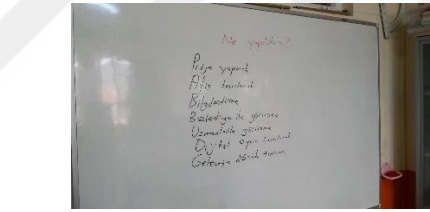 Ne yapabiliriz?
Proje yapmak
Afiş tasarlamak
Bilgilendirme
Belediye ile görüşme
Uzmanlarla görüşme
Dijital oyun tasarlamak